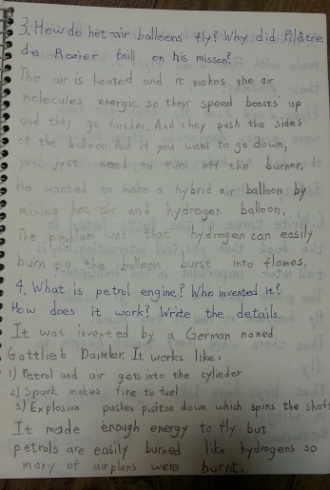 3. How do hot-air balloons fly? Why did Pilâtre
de Rozier fail on his misson?
The air is heated and it makes the air
molecules energic so their speed boosts up
and they go further. And they push the sides
of the balloon. And it you want to go down,
you just need to turn off the burner.
He wanted to make a hybrid air balloon by
mixing hot-air and hydrogen balloon.
The problem was that hydrogen can easily
burn so the balloon burst into flames.
4. What is petrol engine? Who invented it?
How does it work? Write the details.
It was invented by a German named
Gottlieb Daimler. It works like:
1) Petrol and air gets into the cylinder
2) Spark makes fire to fuel
3) Explosion pushes pistton down which spins the shaft
It made enough energy to fly but
petrols are easily burned like hydrogens so
many of airplans were burnt.